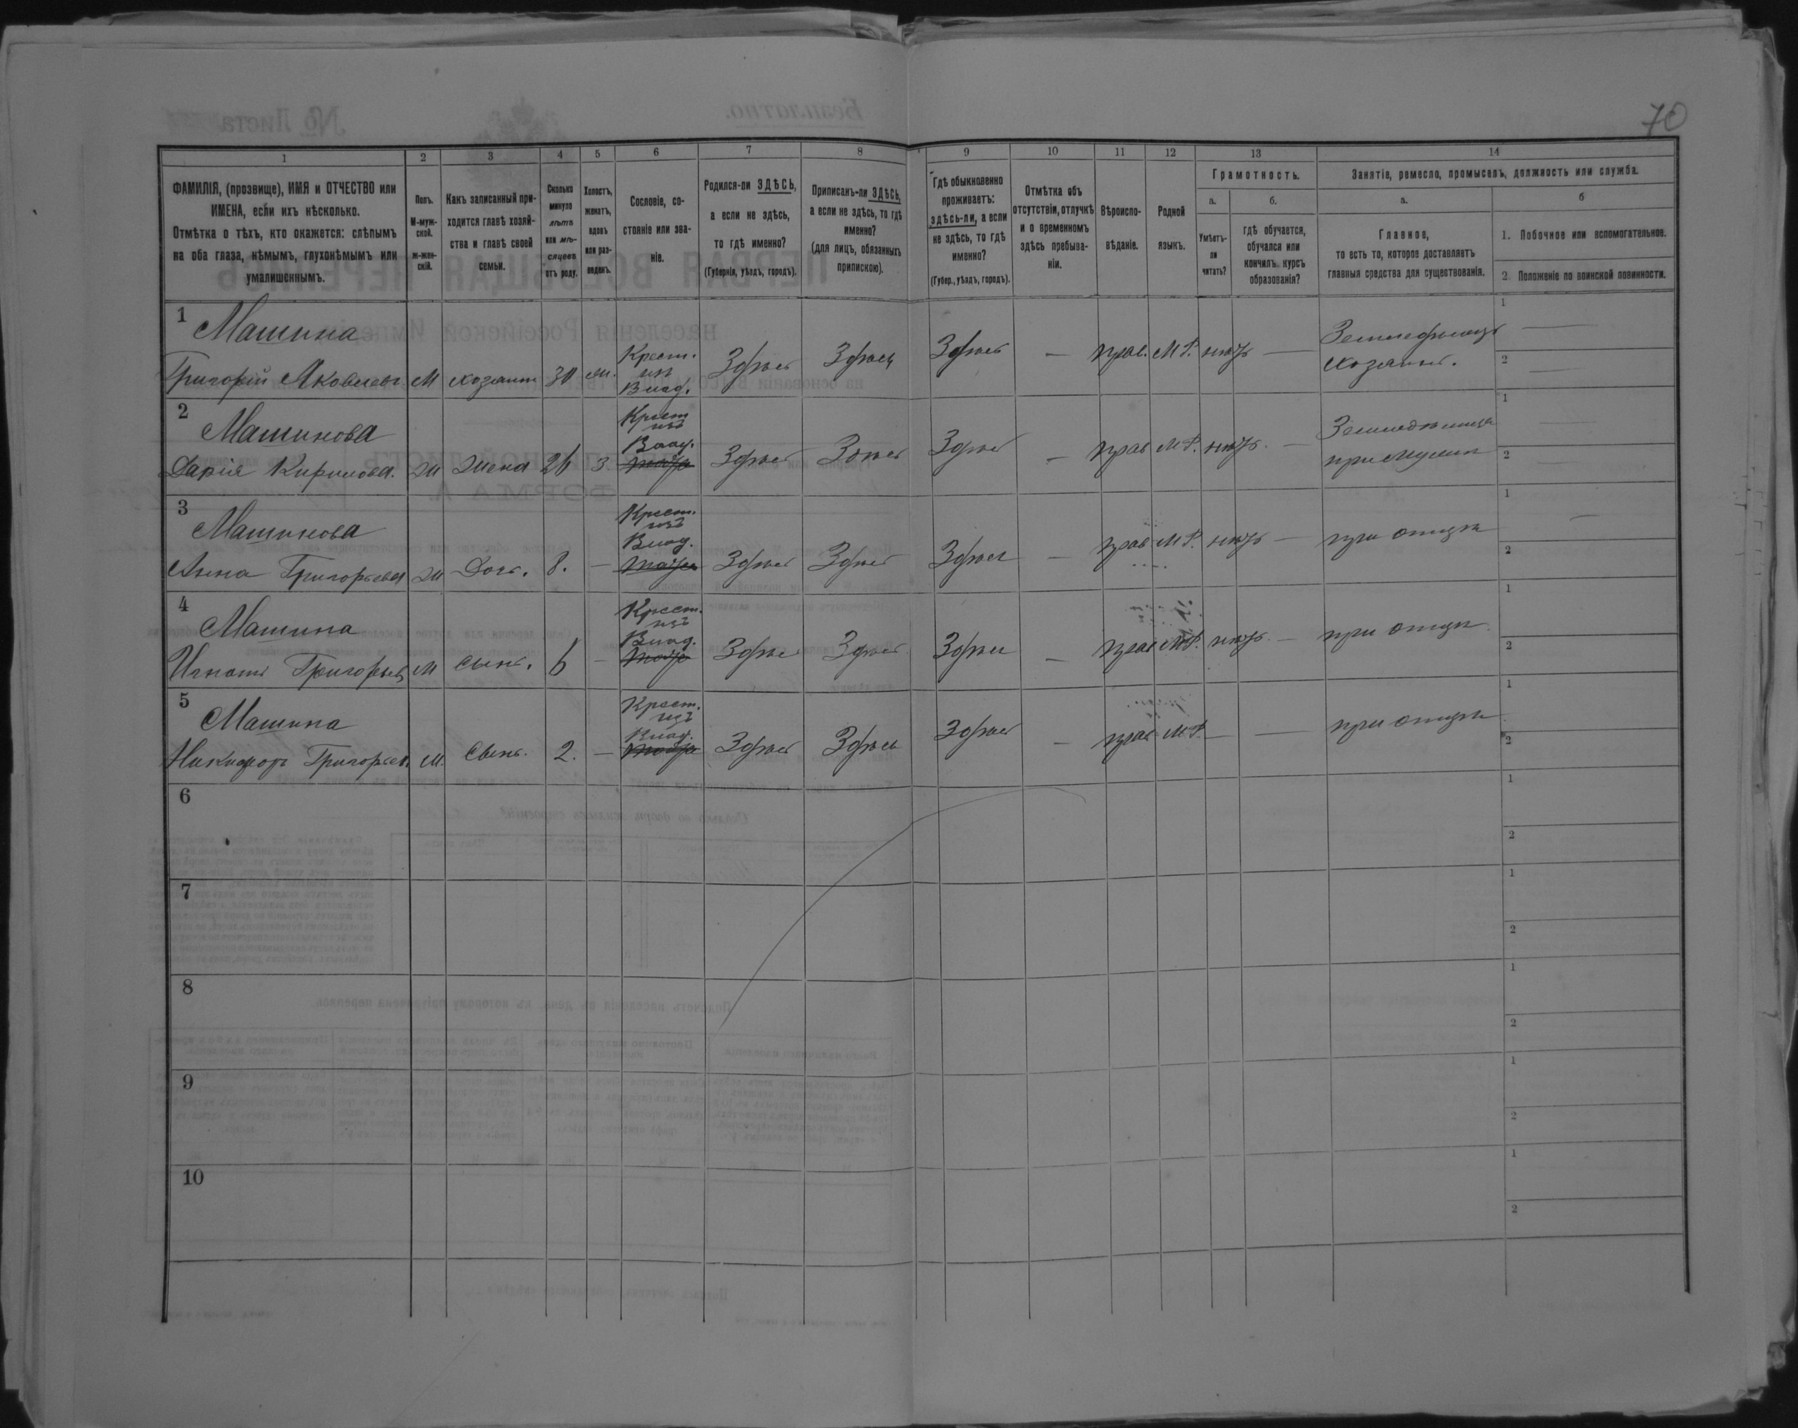 № Листа
Безплатно.
70
1 2 3 4 5 6 7 8 9 10 11 12 13 14
ФАМИЛІЯ, (прозвище), ИМЯ и ОТЧЕСТВО или
ИМЕНА, если ихъ нѣсколько.
Отмѣтка о тѣхъ, кто окажется: слѣпымъ
на оба глаза, нѣмымъ, глухонѣмымъ или
умалишеннымъ.
Полъ.
М-муж-
ской.
ж-жен-
скій.
Какъ записанный при-
ходится главѣ хозяй-
ства и главѣ своей
семьи.
Сколько
минуло
лѣтъ
или мѣ-
сяцевъ
отъ роду.
Холостъ,
женатъ,
вдовъ
или раз-
веденъ.
Сословіе, со-
стояніе или зва-
ніе.
Родился-ли ЗДѢСЬ,
а если не здѣсь,
то гдѣ именно?
(Губернія, уѣздъ, городъ).
Приписанъ-ли ЗДѢСЬ,
а если не здѣсь, то гдѣ
именно?
(для лицъ, обязанныхъ
припискою).
Гдѣ обыкновенно
проживаетъ:
здѣсь-ли, а если
не здѣсь, то гдѣ
именно?
(Губер., уѣздъ, городъ).
Отмѣтка объ
отсутствіи, отлучкѣ
и о временномъ
здѣсь пребыва-
ніи.
Вѣроиспо-
вѣданіе.
Родной
языкъ.
Грамотность.
а.
Умѣетъ-
ли
читать?
б.
гдѣ обучается,
обучался или
кончилъ курсъ
образованія?
Занятіе, ремесло, промыселъ, должность или служба.
а.
Главное,
то есть то, которое доставляетъ
главныя средства для существованія.
б
1. Побочное или вспомогательное.
2. Положеніе по воинской повинности.
1
Машина
Григорій Яковлевъ М хозяинъ 30 ж. Крест. изъ Влад. Здѣсь Здѣсь Здѣсь — прав. М Р. нѣтъ —
Земледѣлецъ
хозяинъ.
1 —
2 —
2
Машинова
Дарія Кирилова. Ж Жена 26 з. Крест изъ Влад. Здѣсь Здѣсь Здѣсь — прав М Р. нѣтъ. —
при мужѣ
1
2
3
Машинова
Анна Григорьева Ж Доч. 8. — Крест. изъ Влад. Здѣсь Здѣсь Здѣсь — прав М Р. нѣтъ — при отцѣ
1 —
2
4
Машина
Игнатъ Григорьев М сынъ. 6 — Крест. изъ Влад. Здѣсь Здѣсь Здѣсь — прав М Р. нѣтъ. — при отцѣ
1
2
5
Машина
Никифоръ Григорьев. М Сынъ. 2. — Крест. изъ Влад. Здѣсь Здѣсь Здѣсь — прав М Р. — — при отцѣ
1
2
6
1
2
7
1
2
8
1
2
9
1
2
10
1
2